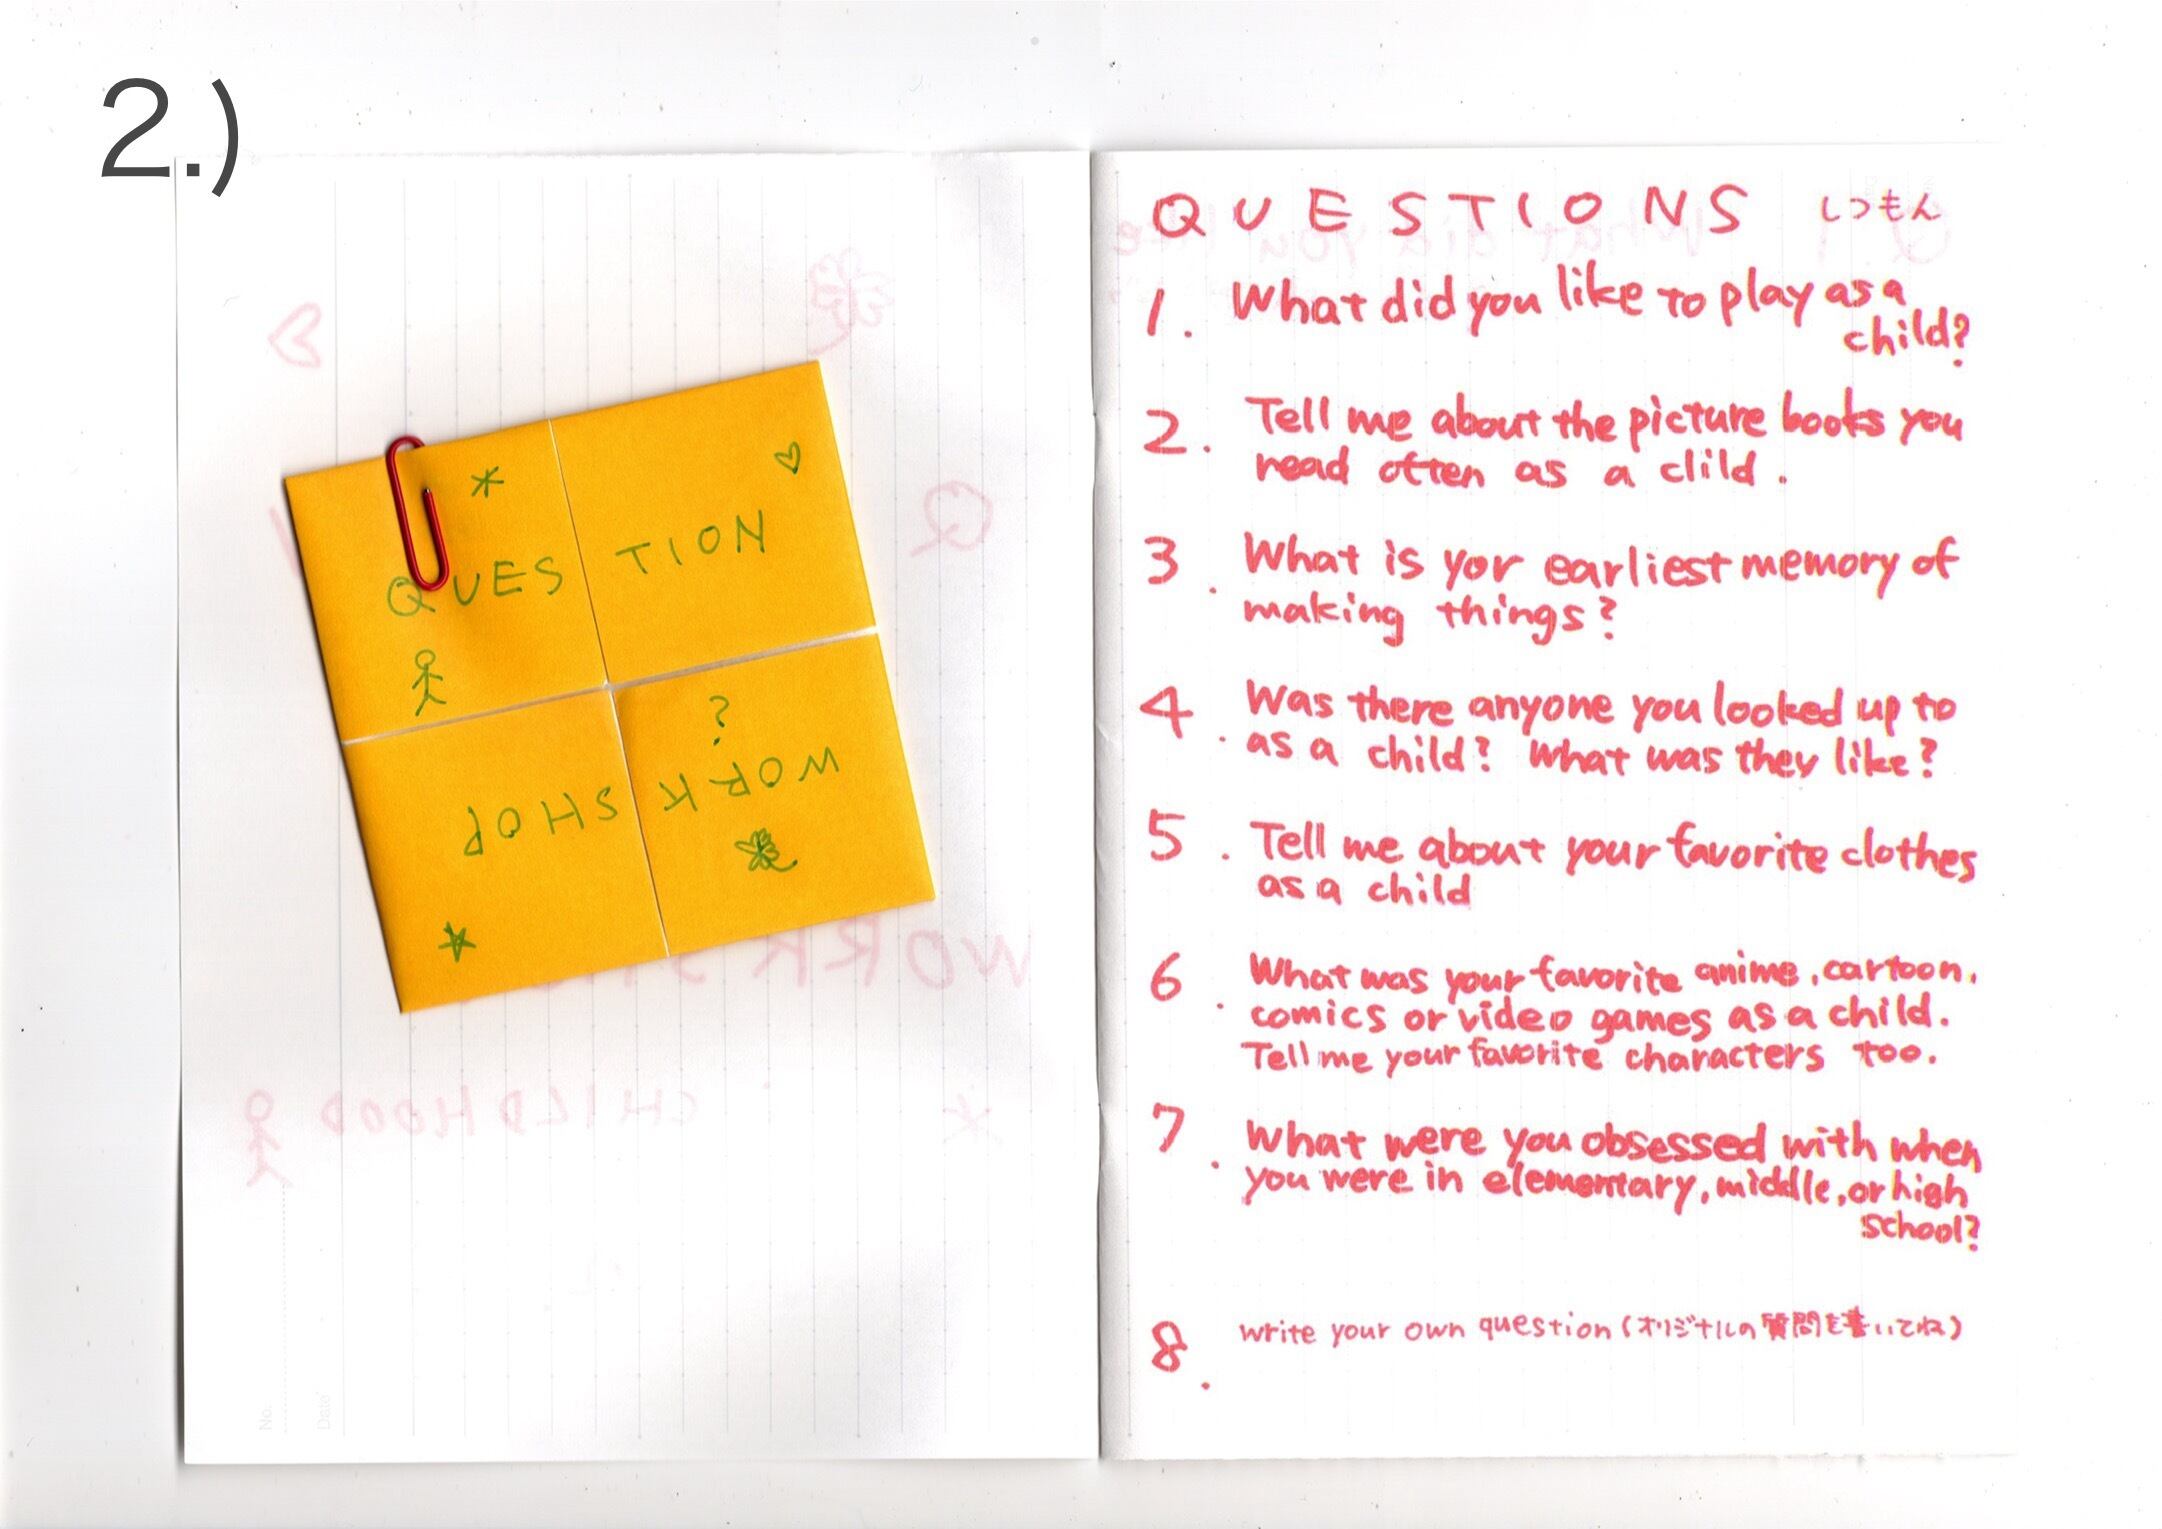 2.)
QUESTION
?
WORK SHOP
No.
Date
QUESTIONS しつもん
1. What did you like to play as a
child?
2. Tell me about the picture books you
read often as a clild.
3. What is yor earliest memory of
making things?
4. Was there anyone you looked up to
as a child? What was they like?
5. Tell me about your favorite clothes
as a child
6. What was your favorite anime, cartoon,
comics or video games as a child.
Tell me your favorite characters too.
7. What were you obsessed with when
you were in elementary, middle, or high
school?
8. write your own question (オリジナルの質問を書いてね)
WORK
CHILDHOOD
Q